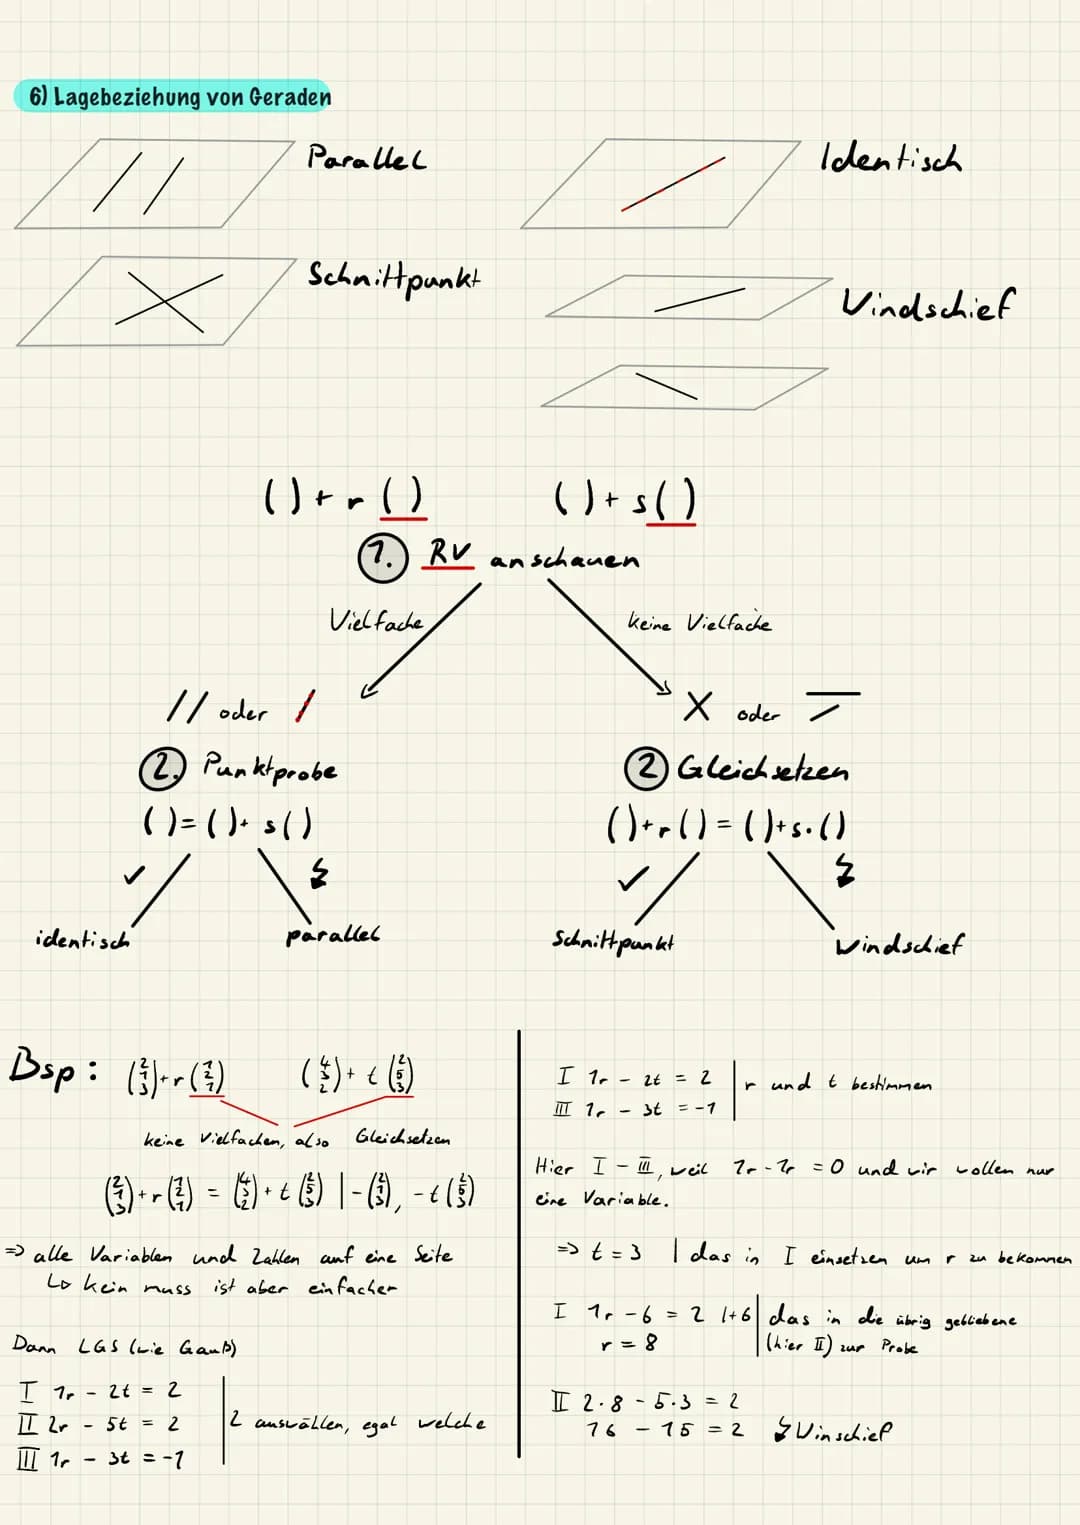 6) Lagebeziehung von Geraden
Parallel
Identisch
Schnittpunkt
Windschief
( ) + r ( )   ( ) + s ( )
1. RV anschauen
Vielfache
keine Vielfache
// oder /
X oder
2. Punktprobe
2 Gleichsetzen
( ) = ( ) + s ( )
( ) + r ( ) = ( ) + s · ( )
✓ ↯
✓ ↯
identisch
parallel
Schnittpunkt
Windschief
Bsp: (2 1 3) + r (1 2 1)   (4 3 2) + t (2 5 3)
keine Vielfachen, also Gleichsetzen
(2 1 3) + r (1 2 1) = (4 3 2) + t (2 5 3) | - (2 1 3), - t (2 5 3)
=> alle Variablen und Zahlen auf eine Seite
↳ kein muss ist aber einfacher
Dann LGS (wie Gauß)
I 1r - 2t = 2
II 2r - 5t = 2
III 1r - 3t = -1
2 auswählen, egal welche
I 1r - 2t = 2
III 1r - 3t = -1
r und t bestimmen
Hier I - III, weil 1r - 1r = 0 und wir wollen nur
eine Variable.
=> t = 3 | das in I einsetzen um r zu bekommen
I 1r - 6 = 2 |+6
r = 8
das in die übrig gebliebene
(hier II) zur Probe
II 2·8 - 5·3 = 2
16 - 15 = 2 ↯ Winschief